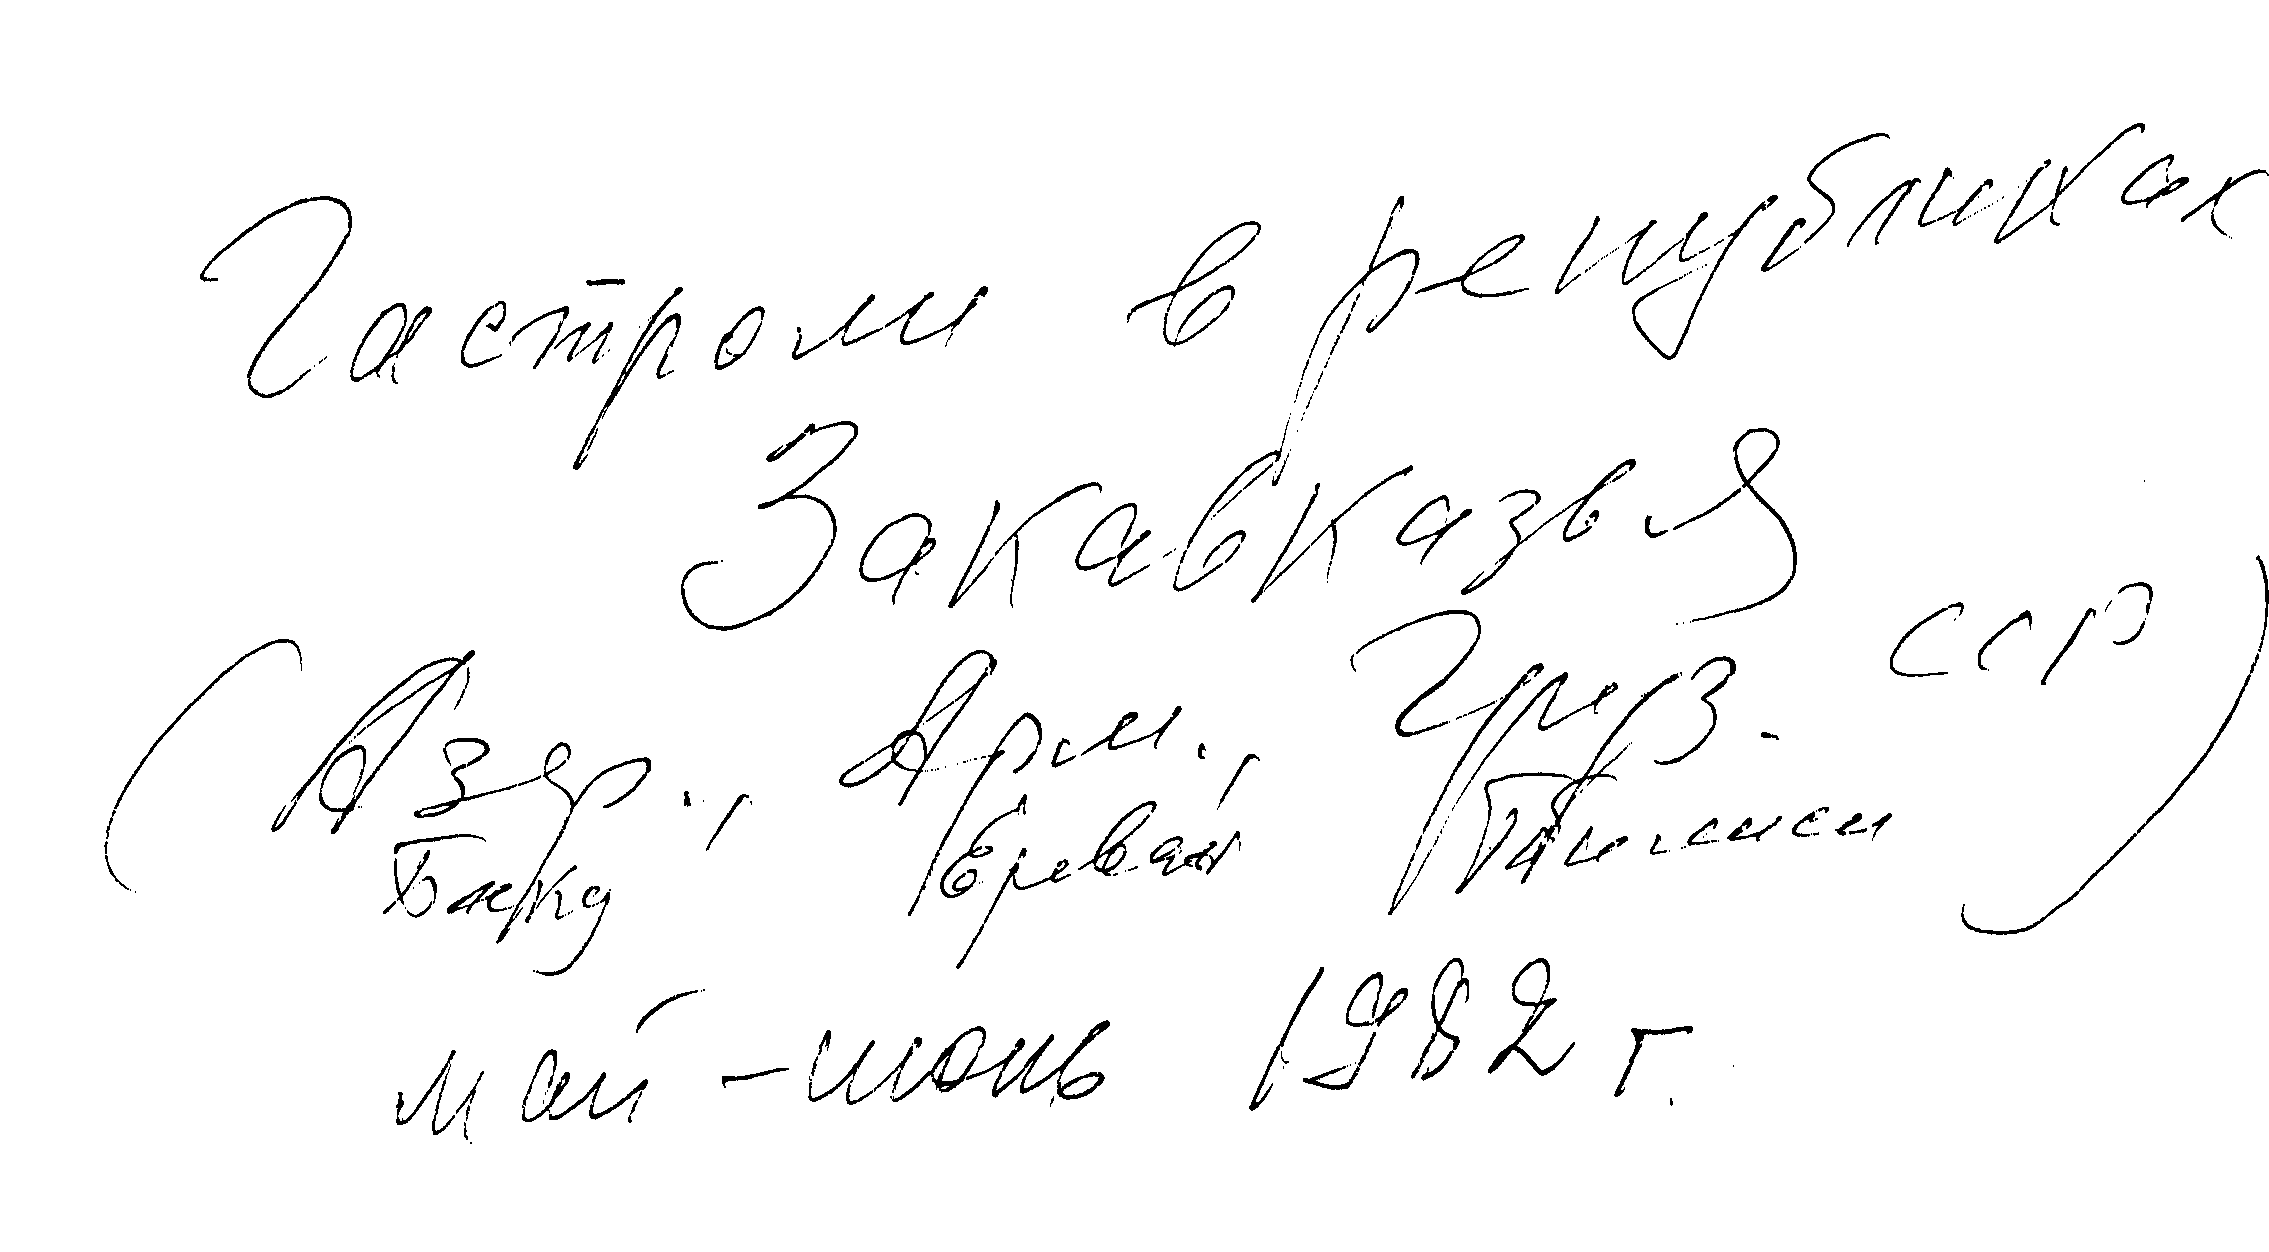 Гастроли в републиках
Закавказья
(Азер., Арм., Груз. ССР)
Баку Ереван Тбилиси
май - июнь 1982 г.